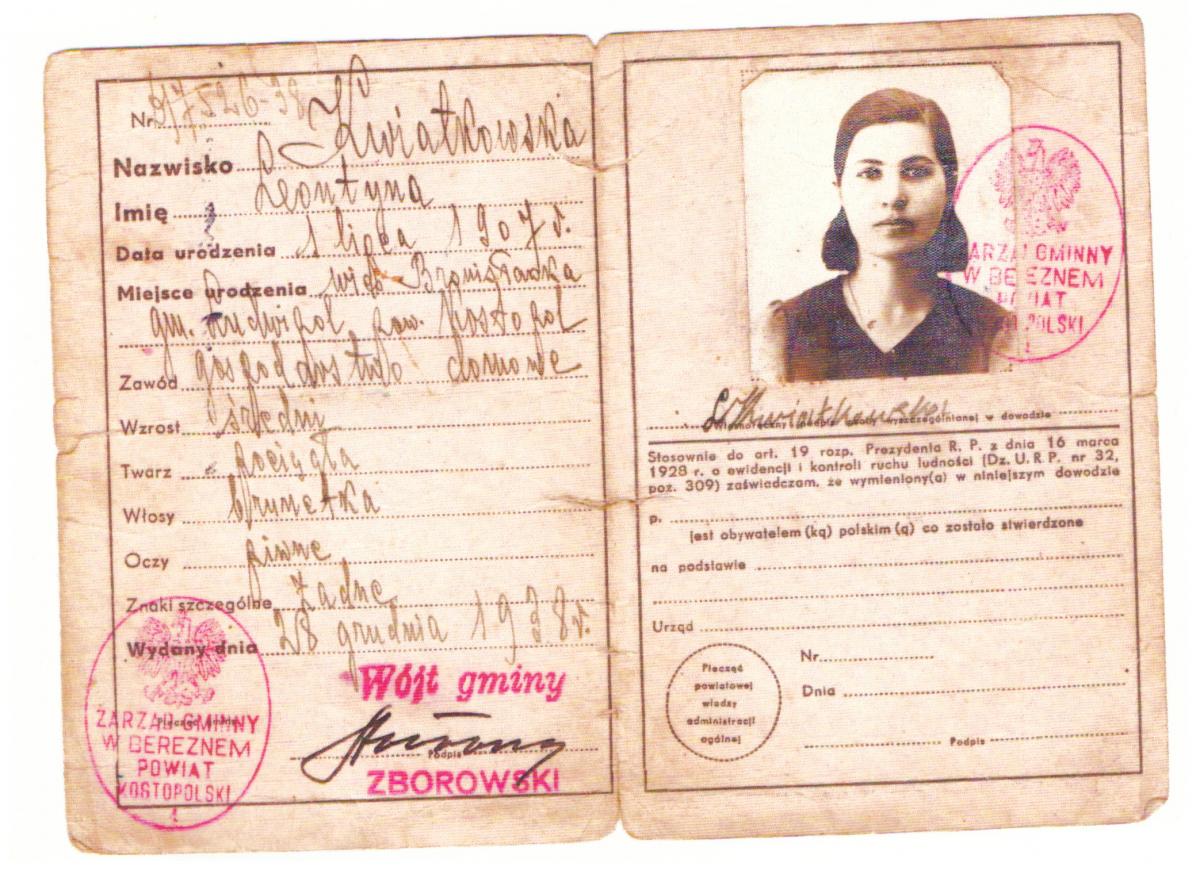 Nr. 526-38
Nazwisko Kwiatkowska
Imię Leontyna
Data urodzenia 1 lipca 1907 r.
Miejsce urodzenia wieś Bronisławka
gm. Ludwipol pow. Kostopol
Zawód gospodarstwo domowe
Wzrost średni
Twarz pociągła
Włosy brunetka
Oczy piwne
Znaki szczególne żadne
Wydany dnia 28 grudnia 1938 r.
Wójt gminy
Podpis
ZBOROWSKI
ZARZĄD GMINNY
W BEREZNEM
POWIAT
KOSTOPOLSKI
1
ZARZĄD GMINNY
W BEREZNEM
POWIAT
KOSTOPOLSKI
1
L Kwiatkowska
Własnoręczny podpis osoby wyszczególnionej w dowodzie
Stosownie do art. 19 rozp. Prezydenta R. P. z dnia 16 marca
1928 r. o ewidencji i kontroli ruchu ludności (Dz. U. R. P. nr 32,
poz. 309) zaświadczam, że wymieniony(a) w niniejszym dowodzie
p.
jest obywatelem (ką) polskim (ą) co zostało stwierdzone
na podstawie
Urząd
Pieczęć
powiatowej
władzy
administracji
ogólnej
Nr.
Dnia
Podpis